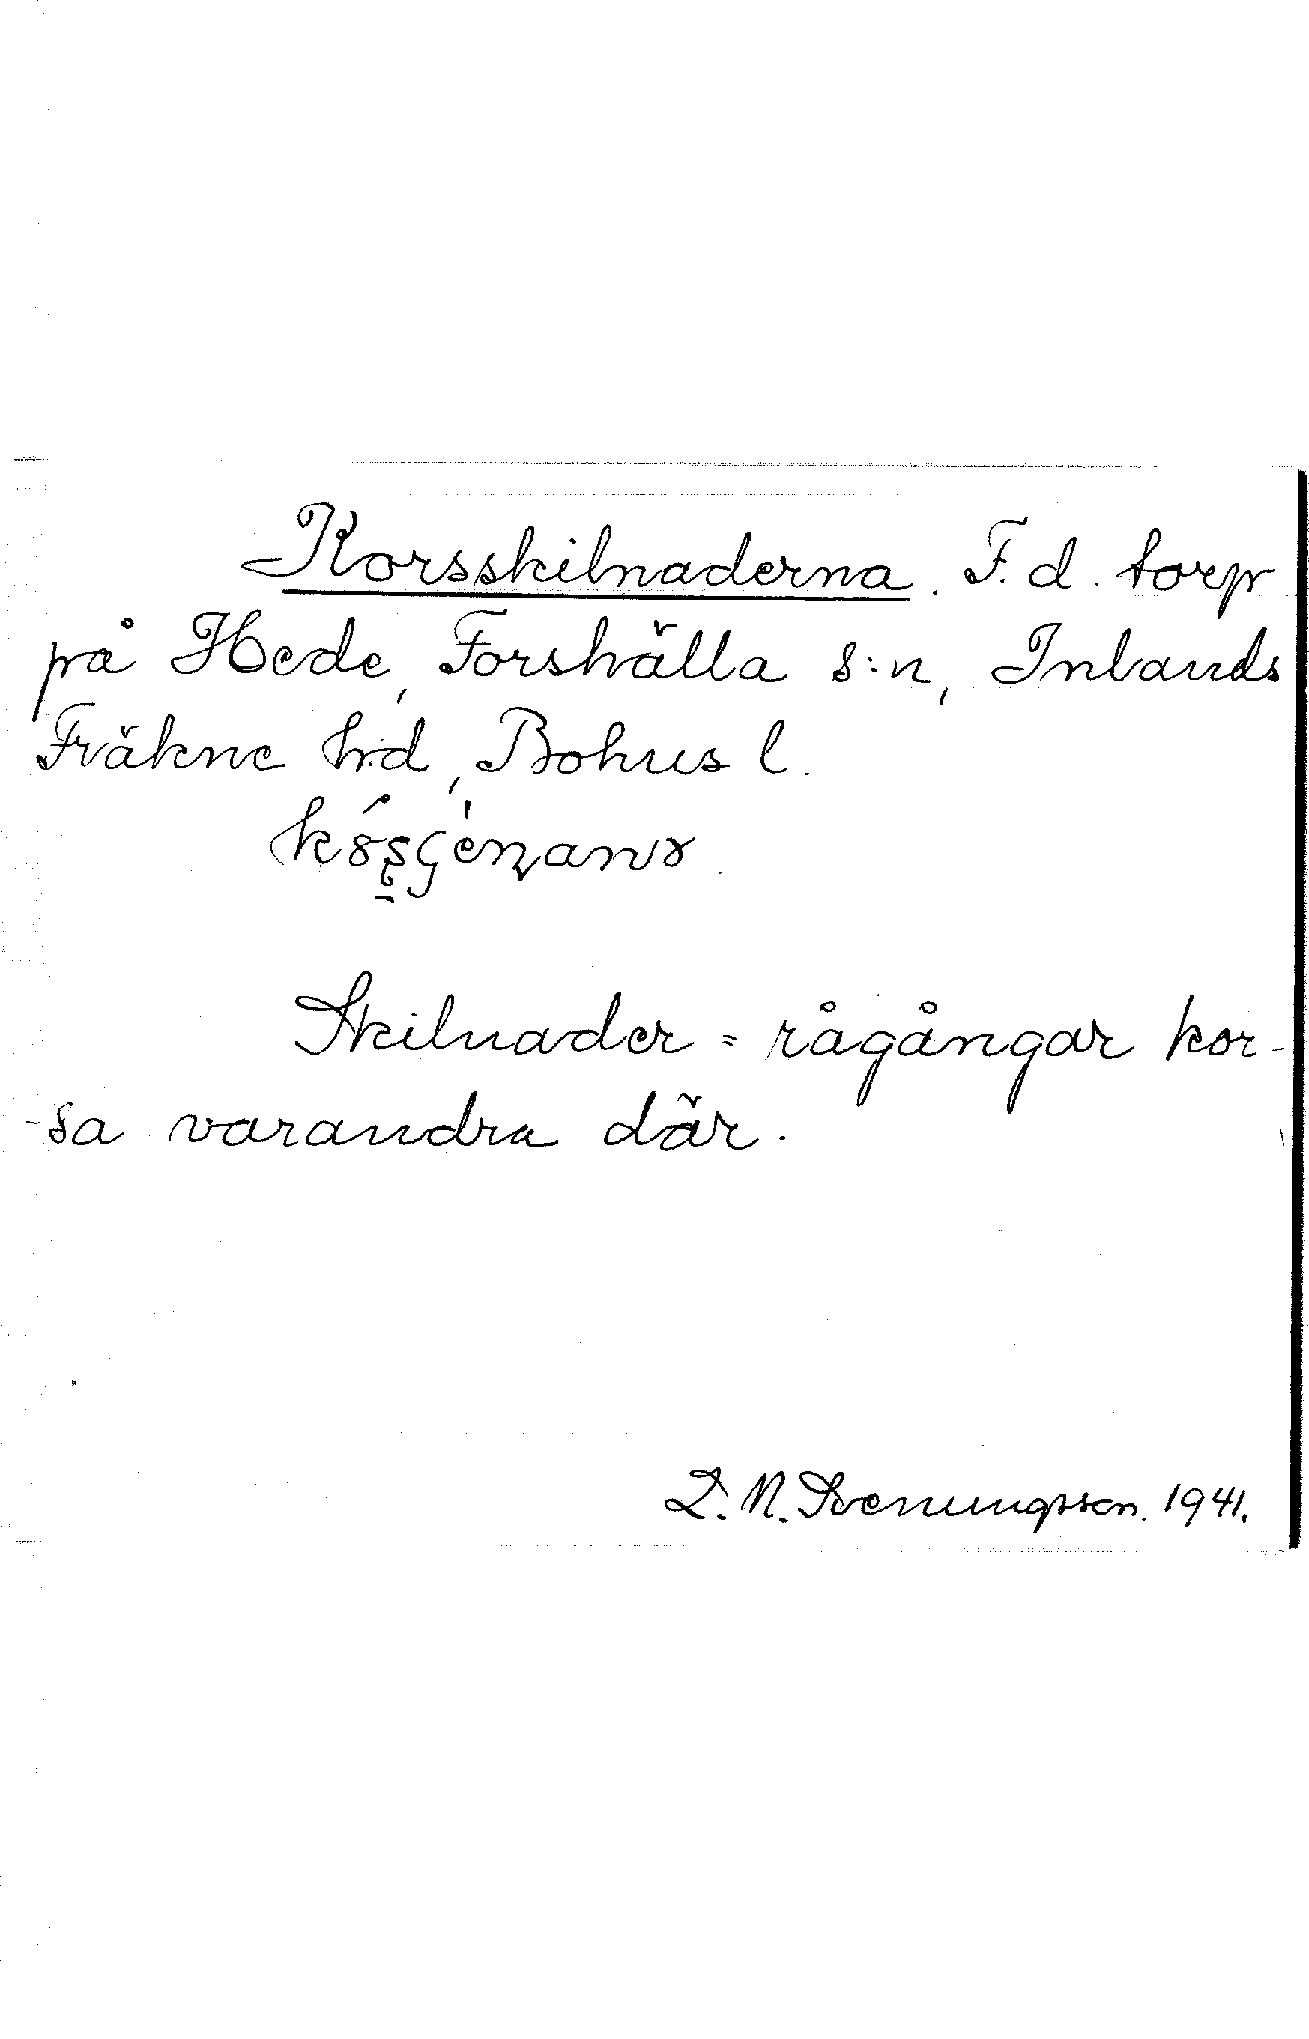 Korsskilnaderna. F.d. torp
på Hede, Forshälla s:n, Inlands
Fräkne hd, Bohus l.
Skilnader = rågångar kor-
sa varandra där.
L. N. Svenungsson. 1941.